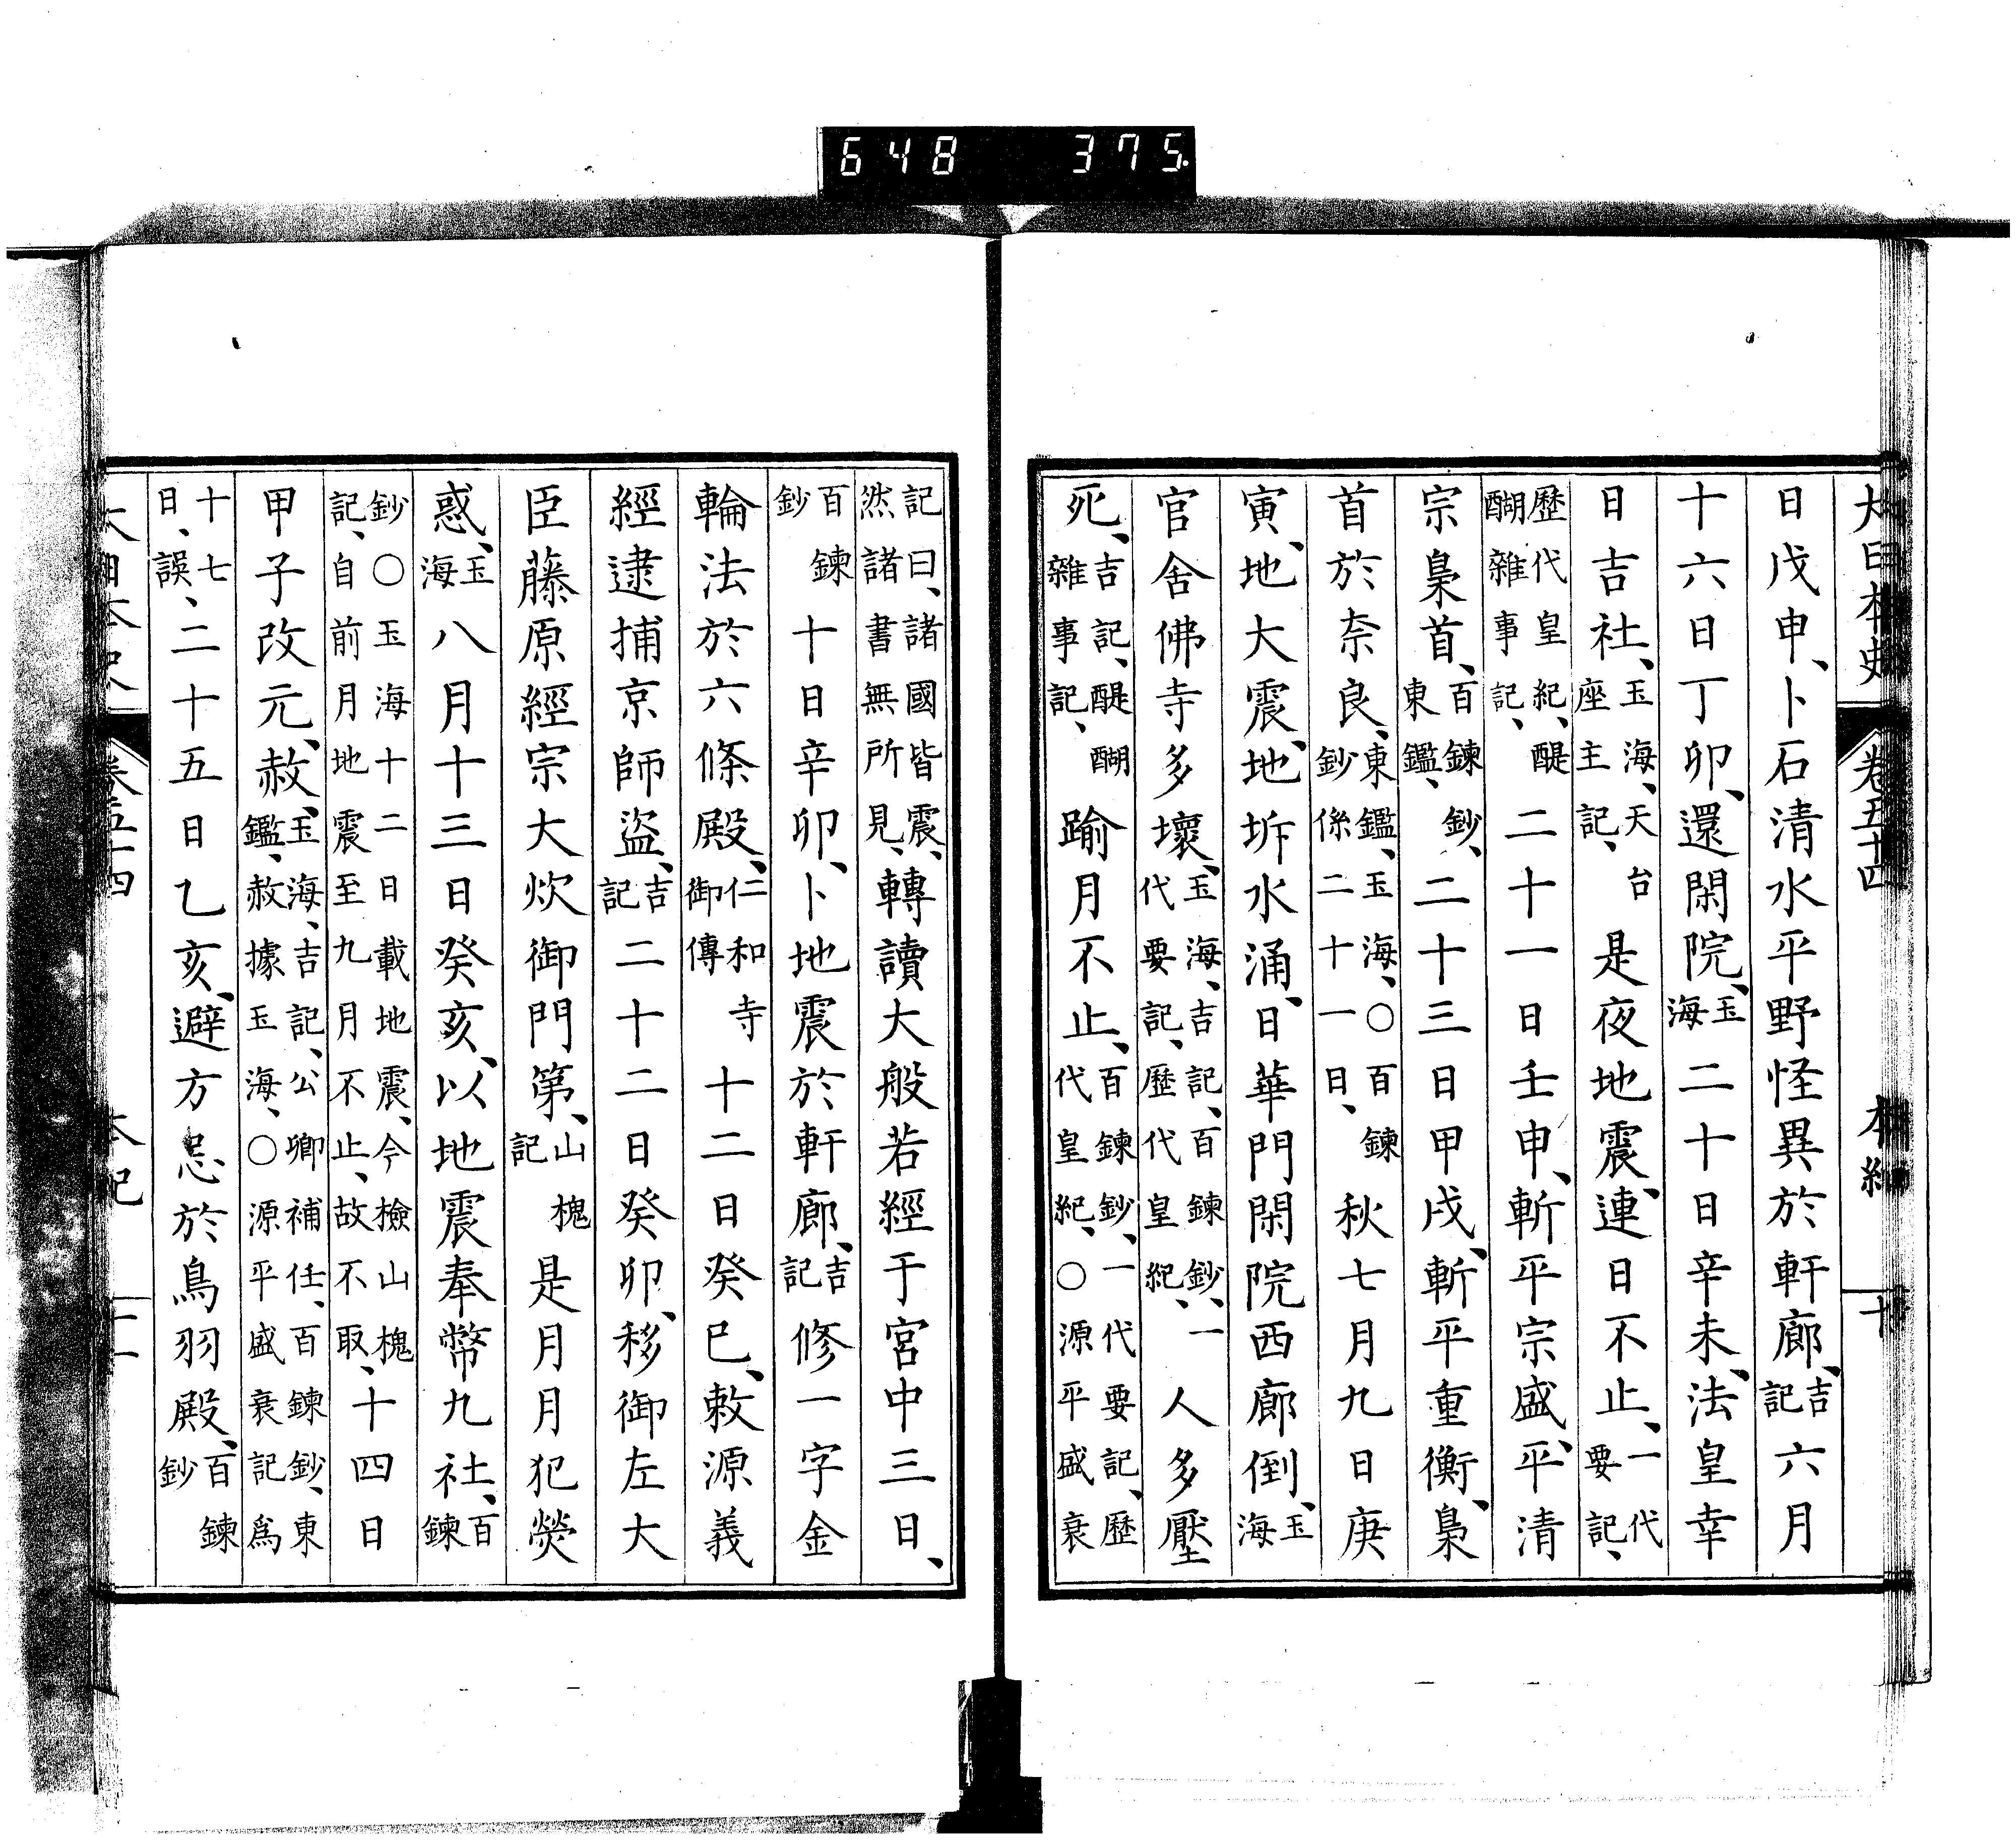 648 375.
大日本史 卷五十四 本紀 十
日戊申、卜石清水平野怪異於軒廊、吉記六月
十六日丁卯、還閑院、玉海二十日辛未、法皇幸
日吉社、玉海、天台座主記、是夜地震、連日不止、一代要記、
歷代皇紀、醍醐雜事記、二十一日壬申、斬平宗盛、平清
宗梟首、百鍊鈔、東鑑、二十三日甲戌、斬平重衡、梟
首於奈良、東鑑、玉海、○百鍊鈔係二十一日、秋七月九日庚
寅、地大震、地坼水涌、日華門閑院西廊倒、玉海
官舍佛寺多壞、玉海、吉記、百鍊鈔、一代要記、歷代皇紀、人多壓
死、吉記、醍醐雜事記、踰月不止、百鍊鈔、一代要記、歷代皇紀、○源平盛衰
記曰、諸國皆震、然諸書無所見、轉讀大般若經于宮中三日、
百鍊鈔十日辛卯、卜地震於軒廊、吉記修一字金
輪法於六條殿、仁和寺御傳十二日癸巳、敕源義
經逮捕京師盜、吉記二十二日癸卯、移御左大
臣藤原經宗大炊御門第、山槐記是月月犯熒
惑、玉海八月十三日癸亥、以地震奉幣九社、百鍊
鈔○玉海十二日載地震、今檢山槐記、自前月地震至九月不止、故不取、十四日
甲子改元、赦、玉海、吉記、公卿補任、百鍊鈔、東鑑、赦據玉海、○源平盛衰記爲
十七日、誤、二十五日乙亥、避方忌於鳥羽殿、百鍊鈔
本紀